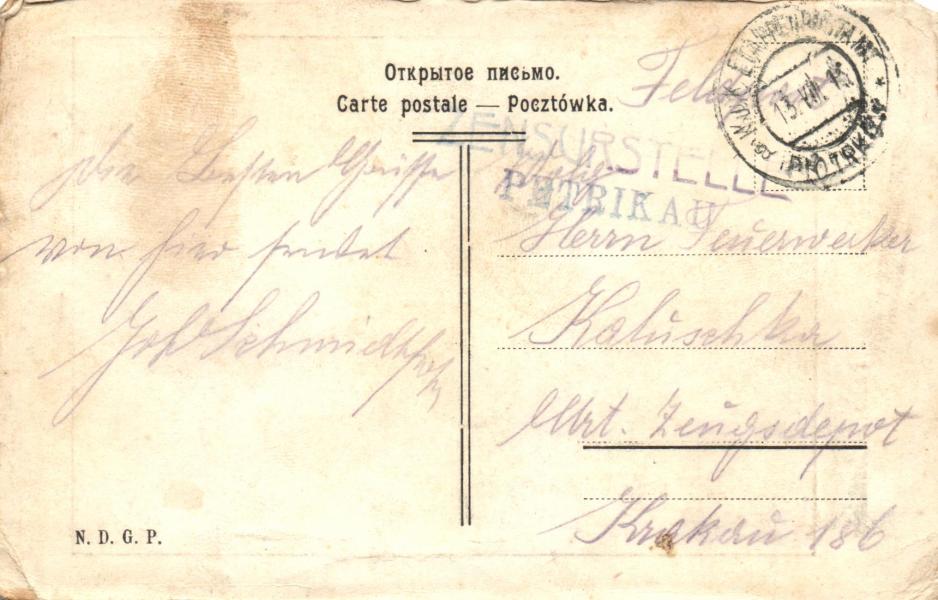 Открытое письмо.
Carte postale — Pocztówka.
Feldpost
ZENSURSTELLE
PETRIKAU
K.U.K. ETAPPENPOSTAMT
13. VIII. 15
PIOTRKÓW
Die Besten Grüsse
von hier sendet
Schmidt
Herrn Feuerwerker
Kaluschka
Art. Zeugsdepot
Krakau 186
N. D. G. P.